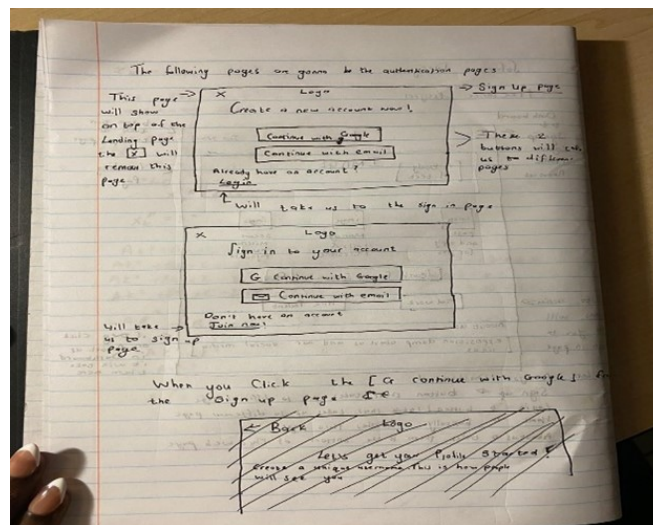 The following pages are gonna be the authentication pages
This page
will show
on top of the
Landing page
the [X] will
remove this
page
X Logo
Create a new account now!
Continue with Google
Continue with email
Already have an account?
Login
Sign Up page
These 2
buttons will take
us to different
pages
will take us to the sign in page
X Logo
Sign in to your account
G Continue with Google
Continue with email
Don't have an account
Join now!
Will take
us to sign up
page
When you Click the [G continue with Google]
the Sign up page
← Back Logo
Let's get your Profile started!
Create a unique username. This is how people
will see you